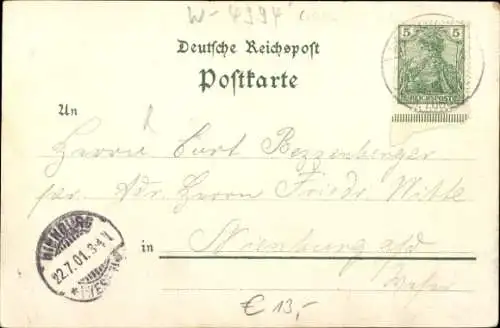 W-4994
Deutsche Reichspost
Postkarte
5 5
REICHSPOST
An
Herrn Curt Bezzenberger
per Adr. Herrn Friedr. Witte
in Nienburg a/d
Weser
NIENBURG
22.7.01. 3-4 N
* (WESER)
€ 13,-